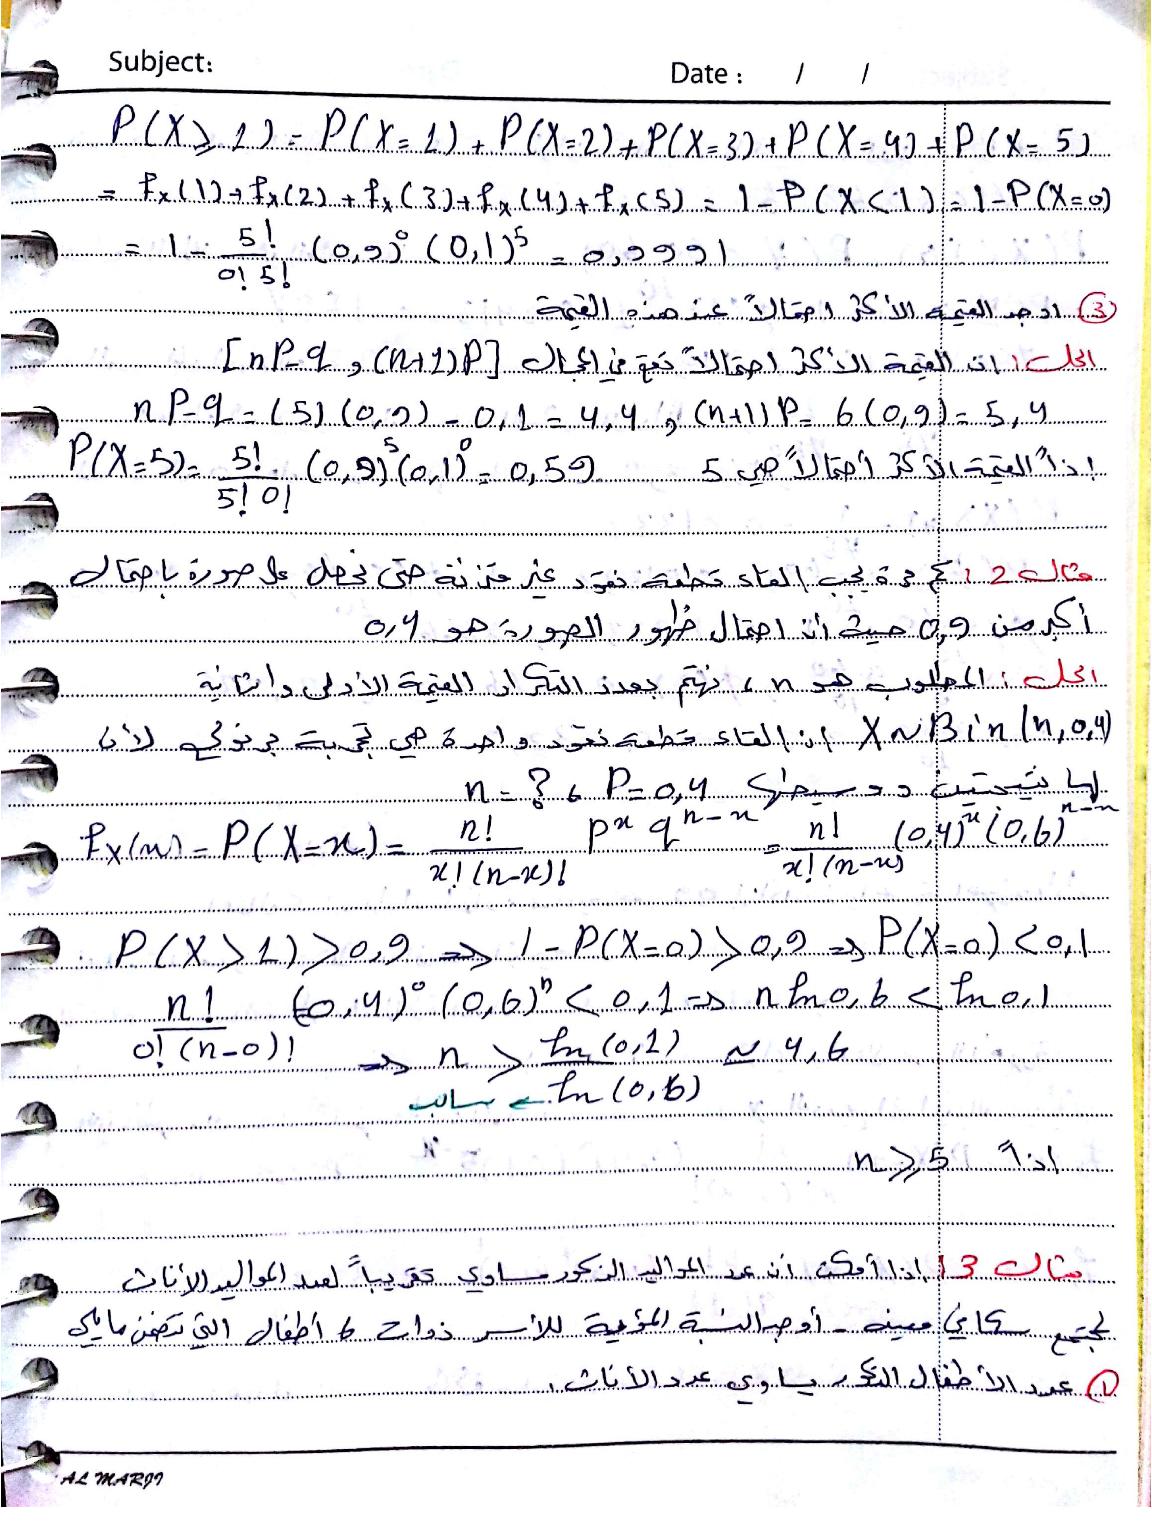 Subject:
Date : / /
P(X⩾1) = P(X=1) + P(X=2) + P(X=3) + P(X=4) + P(X=5)
= fx(1) + fx(2) + fx(3) + fx(4) + fx(5) = 1 - P(X<1) = 1 - P(X=0)
= 1 - 5!/(0! 5!) (0,9)^0 (0,1)^5 = 0,9991
③ اوجد القيمة الأكثر احتمالاً عند هذه القيمة
الحل : ان القيمة الأكثر احتمالاً تقع في المجال [nP-q , (n+1)P]
nP-q = (5)(0,9) - 0,1 = 4,4 , (n+1)P = 6(0,9) = 5,4
إذاً القيمة الأكثر احتمالاً هي 5 P(X=5) = 5!/(5! 0!) (0,9)^5 (0,1)^0 = 0,59
مثال 2 : كم مرة يجب القاء قطعة نقود غير متزنة حتى نحصل على صورة باحتمال
أكبر من 0,9 حيث أن احتمال ظهور الصورة هو 0,4
الحل : المطلوب هو n ، نهتم بعدد التكرار القيمة الأولى والثانية
X~Bin(n,0,4) ان القاء قطعة نقود واحدة هي تجربة برنولي لأن
لها نتيجتين P=0,4 ، n=?
fx(x) = P(X=x) = n!/(x!(n-x)!) p^x q^(n-x) = n!/(x!(n-x)) (0,4)^x (0,6)^(n-x)
P(X⩾1) > 0,9 ⇒ 1 - P(X=0) > 0,9 ⇒ P(X=0) < 0,1
n!/(0!(n-0)!) (0,4)^0 (0,6)^n < 0,1 ⇒ n ln 0,6 < ln 0,1
⇒ n > ln(0,1)/ln(0,6) ≈ 4,6
سالب ←
اذاً n⩾5
مثال 3 : إذا أمكن أن عدد المواليد الذكور مساوي تقريباً لعدد المواليد الأناث
لمجتمع سكاني معينة - أوجد النسبة المؤية للأسر ذوات 6 أطفال التي تتضمن مايلي
① عدد الأطفال الذكور يساوي عدد الأناث .
AL MARJI